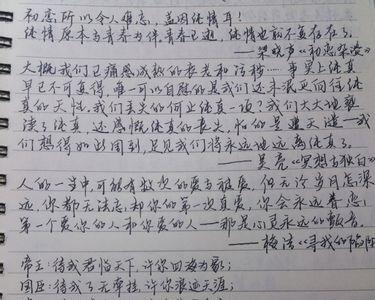 初恋所以令人难忘，盖因纯情耳！
纯情原本与青春为伴，青春已逝，纯情也就不复存在了。
——梁晓声《初恋杂谈》
大概我们已痛感成熟的丧失和污秽……事实上纯真
早已不可复得，唯一可以自慰的是我们还未泯灭向往纯
真的天性。我们丢失的何止纯真一项？我们大大地亵
渎了纯真，还感慨纯真的丧失，怕的是遭天谴——我
们想得如此周到，足见我们将永远地远离纯真了。
——吴亮《冥想与独白》
人的一生中，可能有数次的爱与被爱，但无论岁月怎深
远，你都无法忘却你的第一次真爱，你会永远眷恋
第一个爱你的人和你爱的人——那是心灵永远的
——梅洁《寻找的
帝王：待我君临天下，许你四海为家；
国臣：待我了无牵挂，许你浪迹天涯；